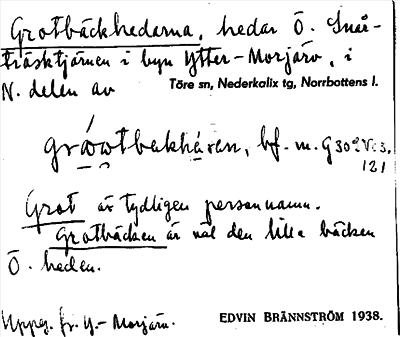 Grotbäckhedarna, hedar Ö. Snår-
träsktjärnen i byn Ytter-Morjärv, i
N. delen av Töre sn, Nederkalix tg, Norrbottens l.
bf. m. G 302 V: 3,
121
Grot är tydligen personnamn.
Grotbäcken är väl den lilla bäcken
Ö. heden.
Uppg. fr. Y.-Morjärv.
EDVIN BRÄNNSTRÖM 1938.